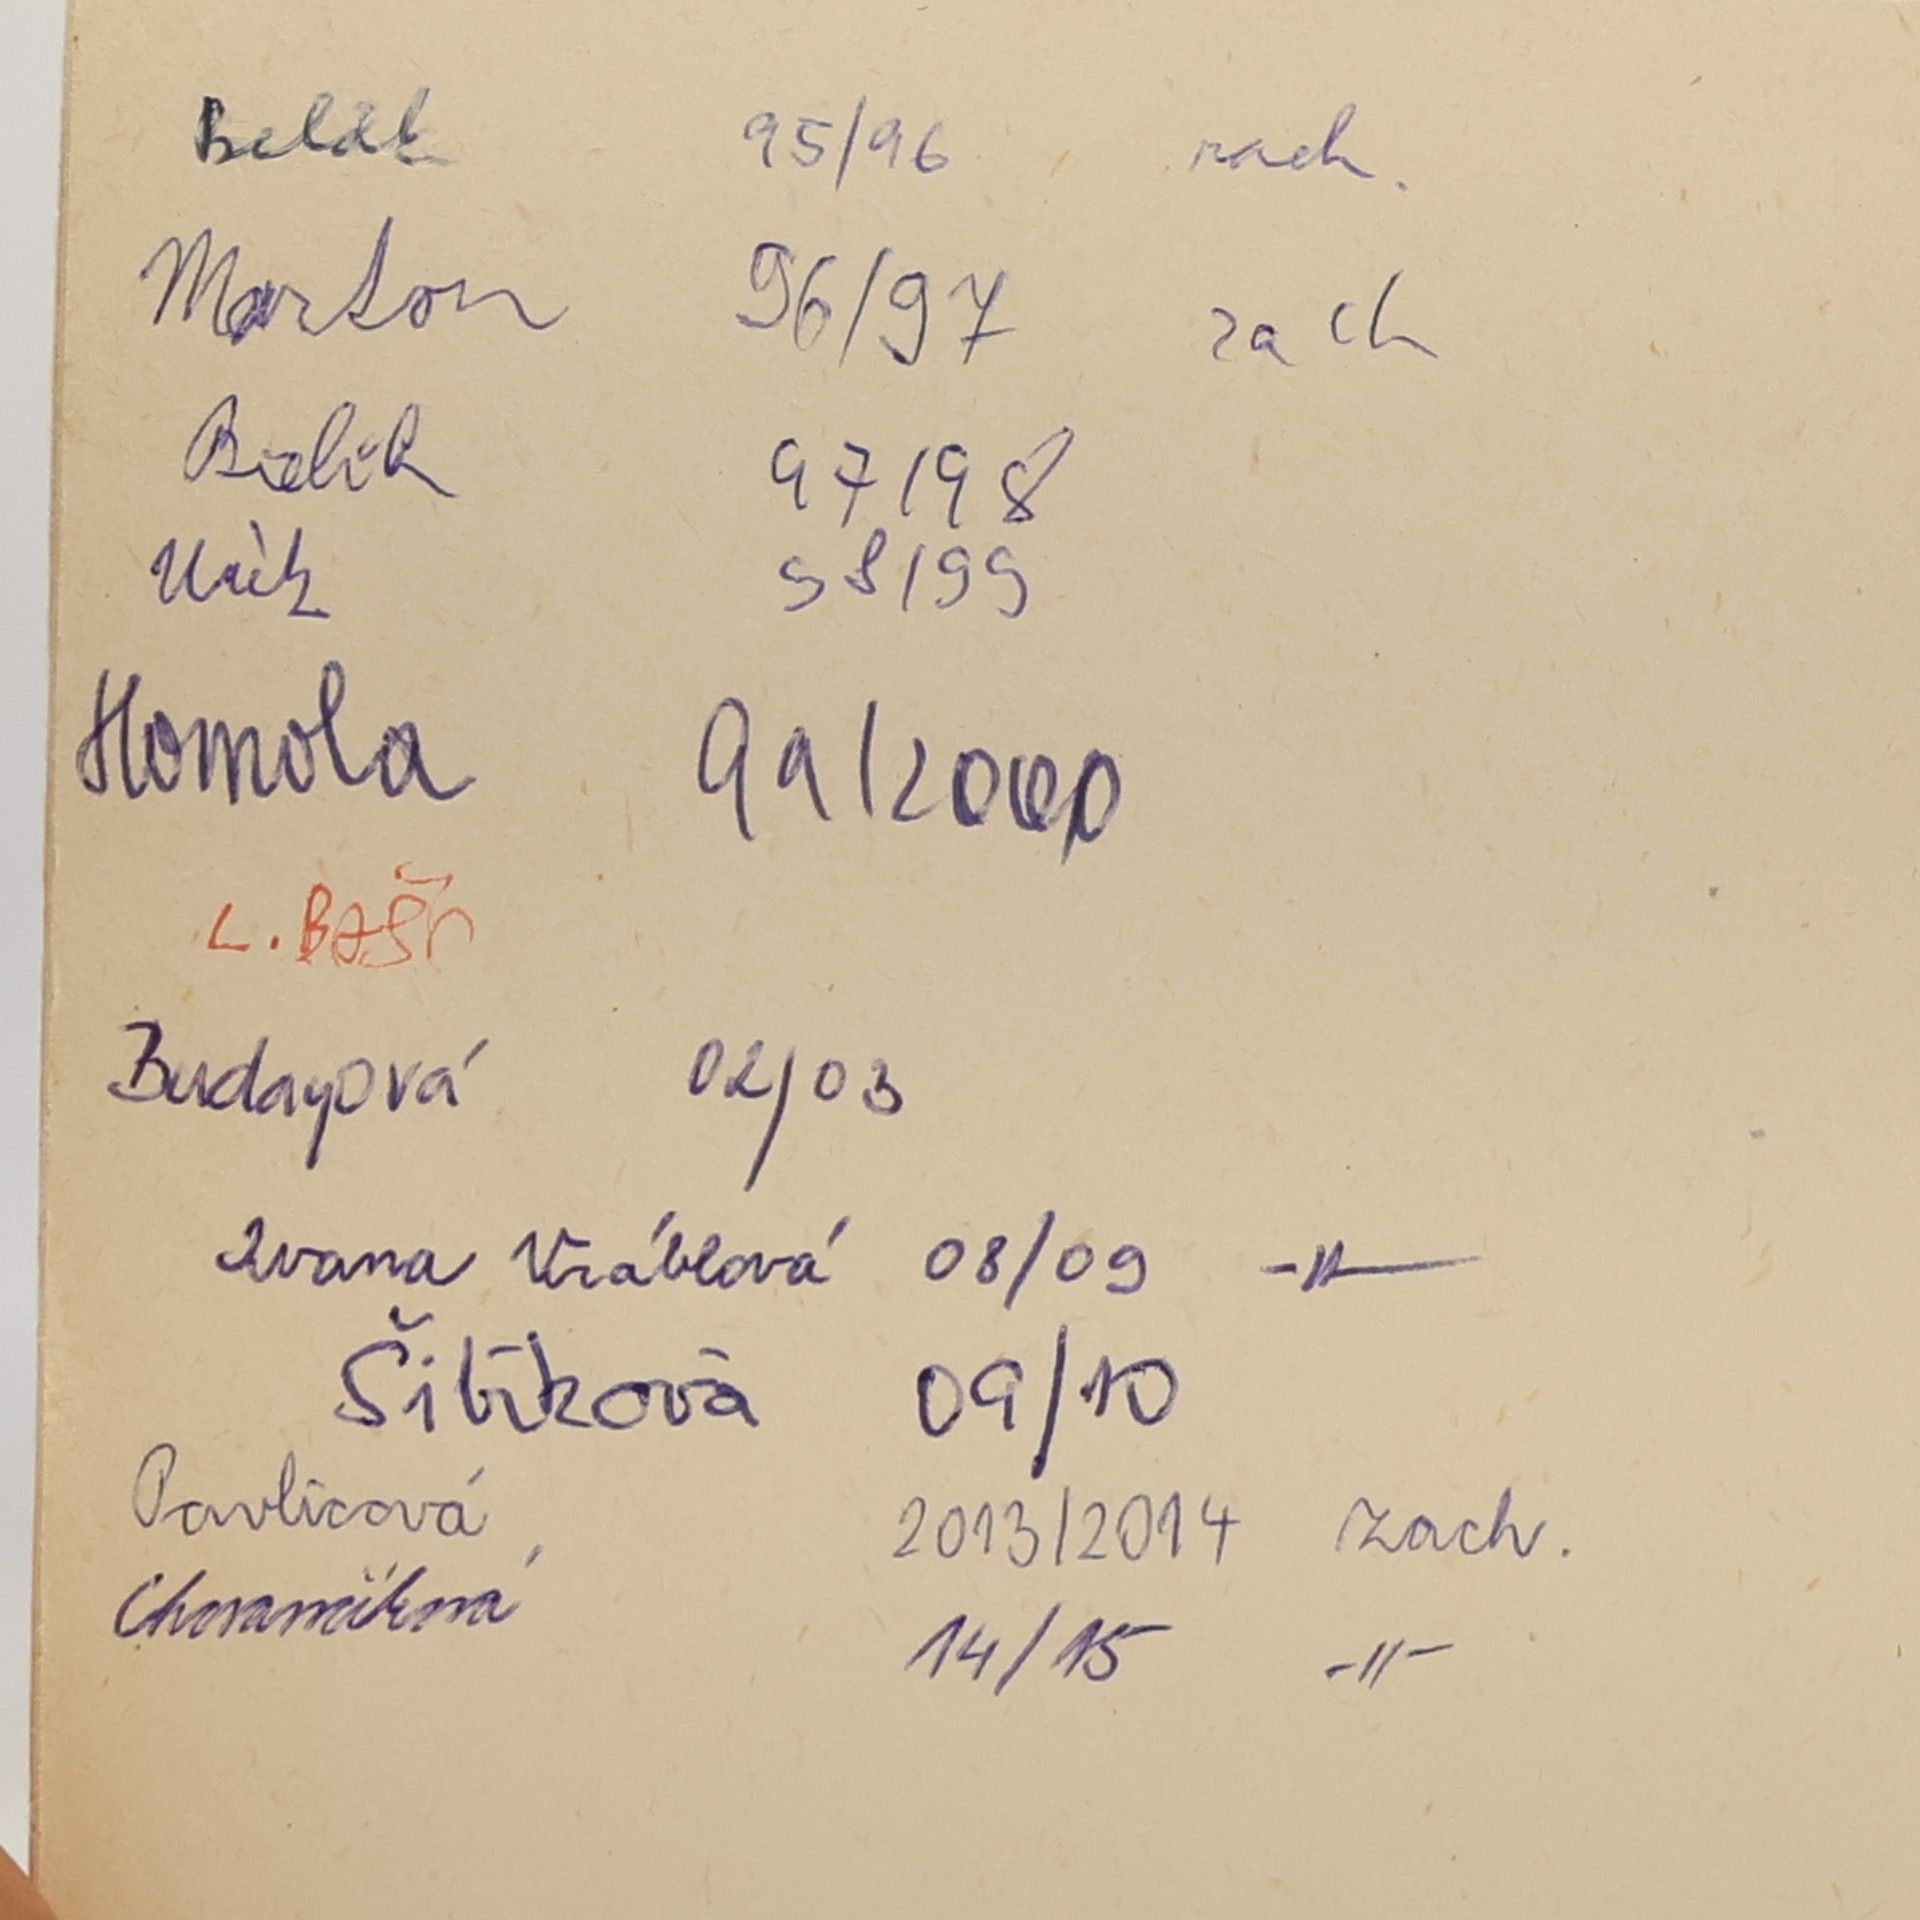 Belák 95/96 zach.
Marton 96/97 zach
Bielik 97/98
98/99
Homola 99/2000
L. BAŠN
Budayová 02/03
Ivana Vráblová 08/09 -11-
Šibíková 09/10
Pavlicová 2013/2014 zach.
14/15 -11-